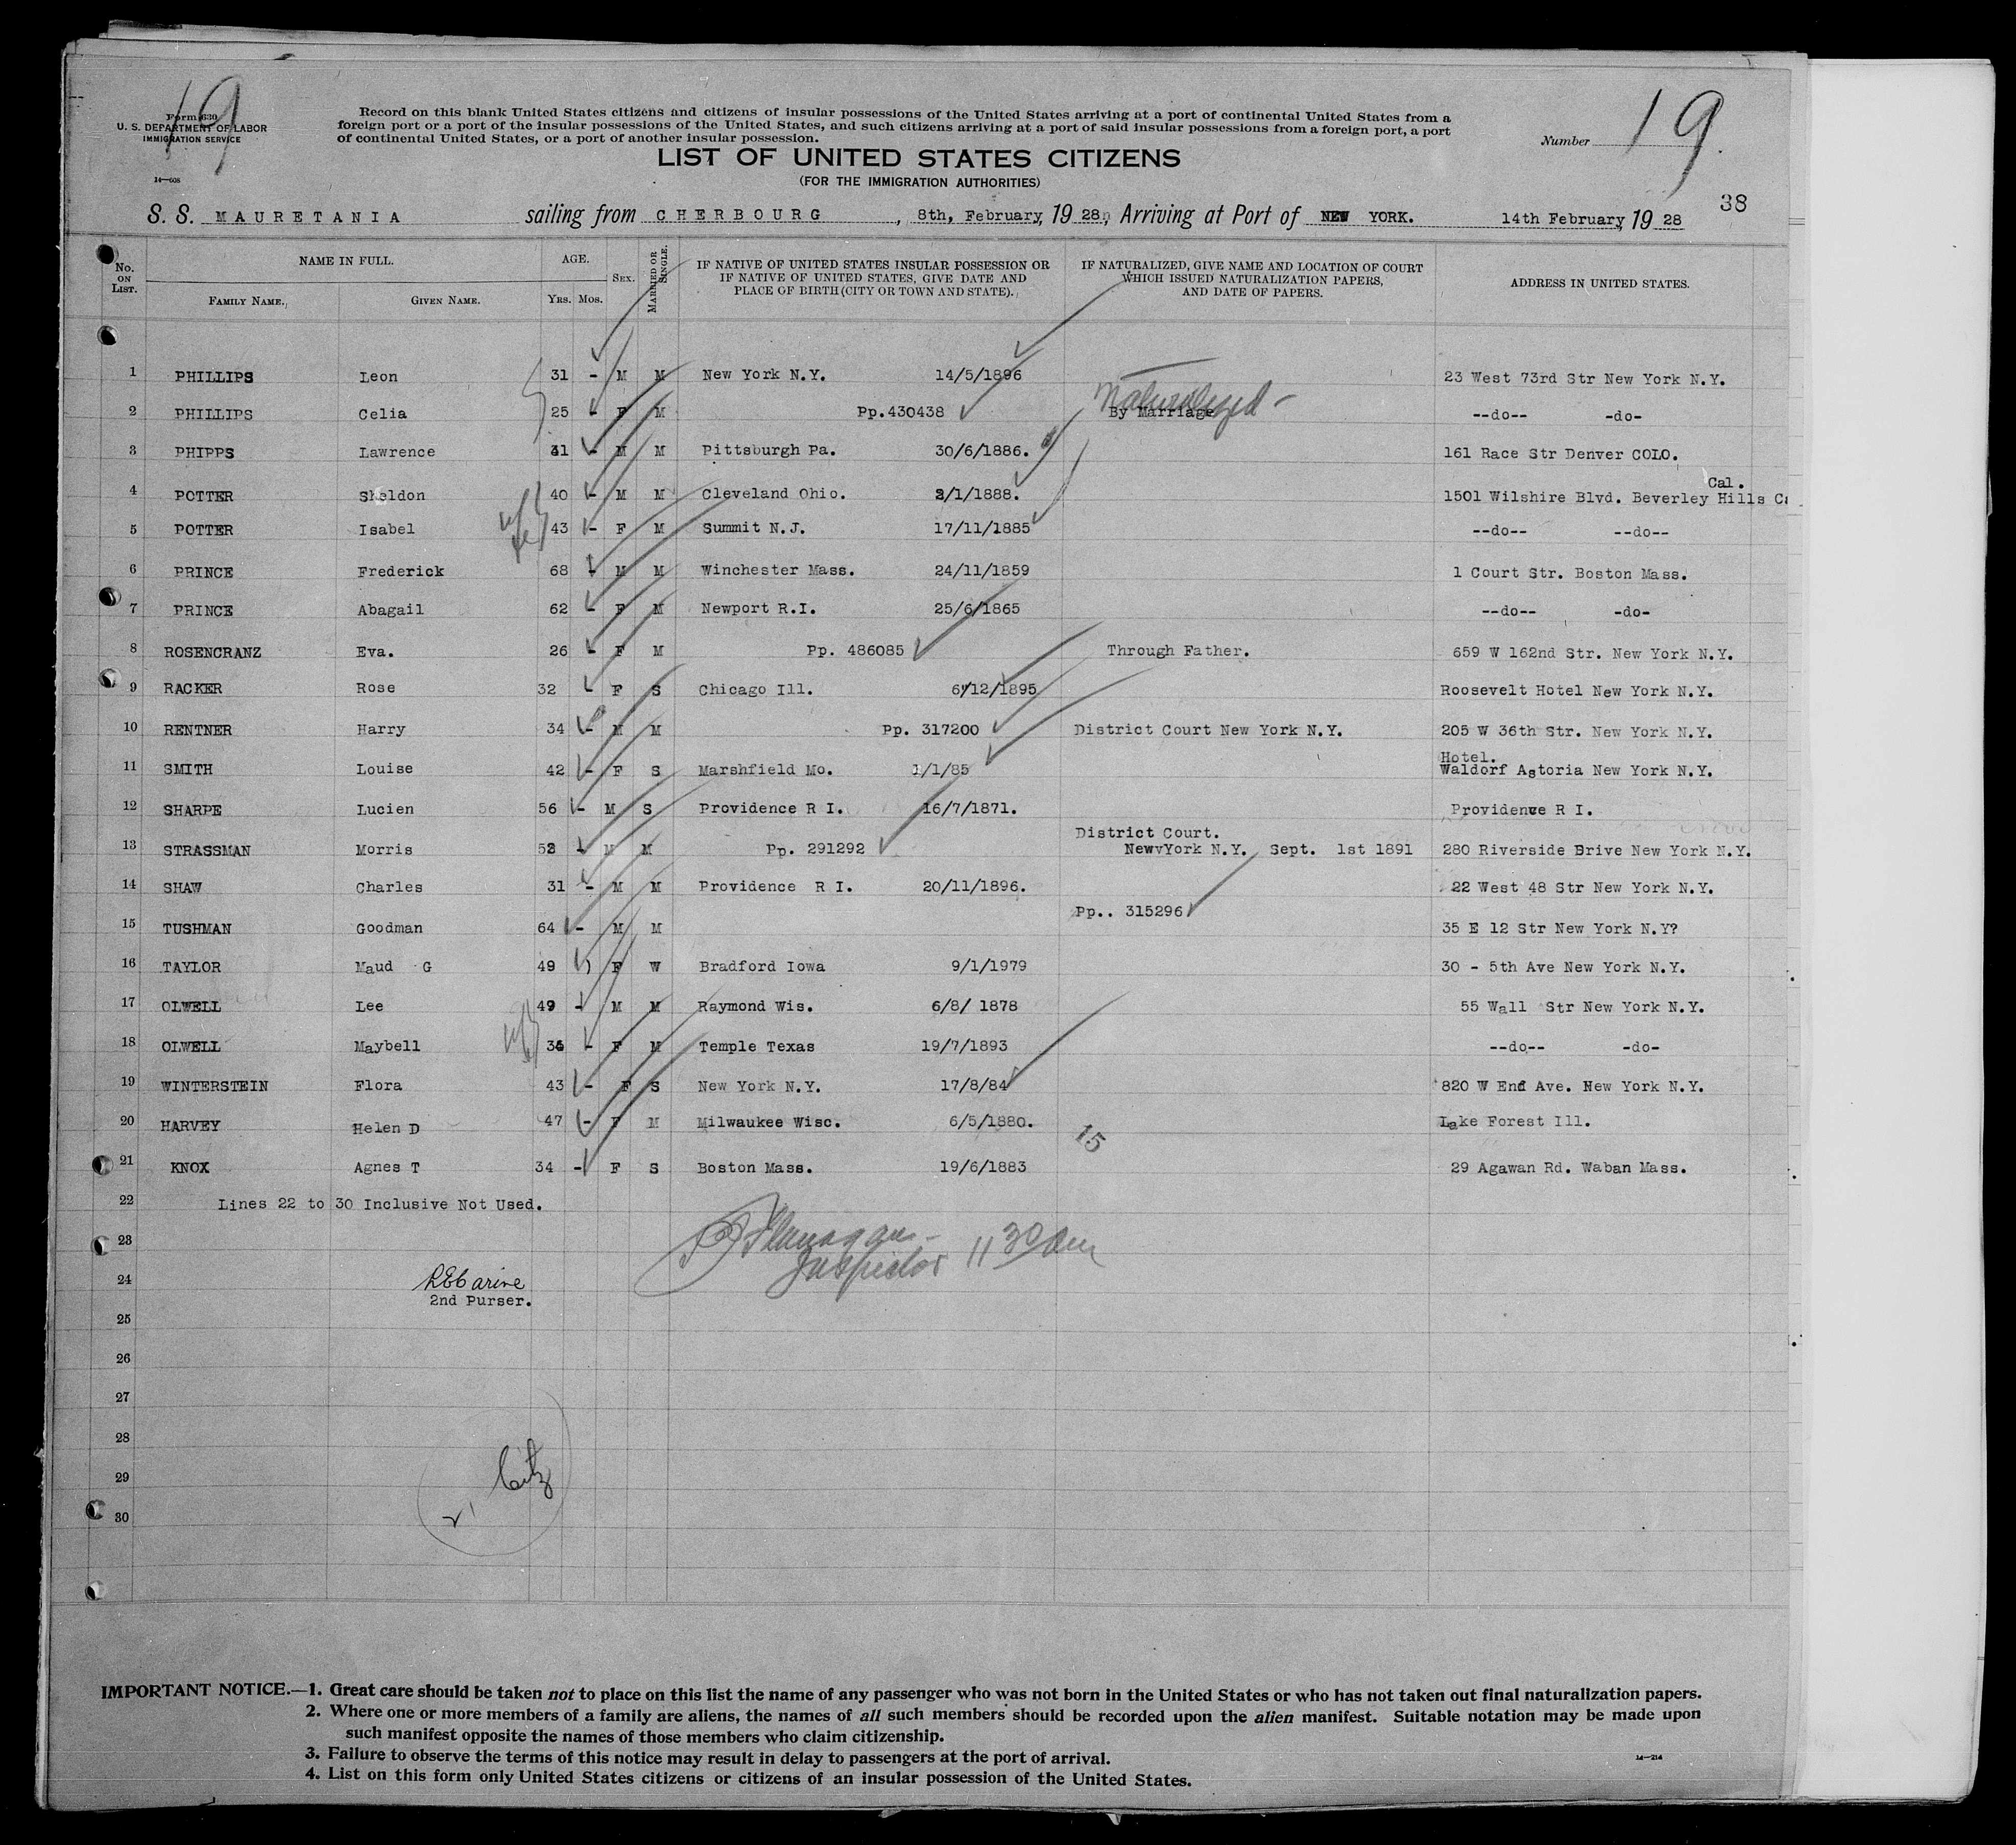 19
Form 630
U. S. DEPARTMENT OF LABOR
IMMIGRATION SERVICE
14—608
Record on this blank United States citizens and citizens of insular possessions of the United States arriving at a port of continental United States from a
foreign port or a port of the insular possessions of the United States, and such citizens arriving at a port of said insular possessions from a foreign port, a port
of continental United States, or a port of another insular possession.
Number 19.
LIST OF UNITED STATES CITIZENS
(FOR THE IMMIGRATION AUTHORITIES)
38
S. S. MAURETANIA sailing from CHERBOURG, 8th, February, 1928, Arriving at Port of NEW YORK. 14th February, 1928
No. ON LIST. NAME IN FULL. AGE. SEX. MARRIED OR SINGLE. IF NATIVE OF UNITED STATES INSULAR POSSESSION OR IF NATIVE OF UNITED STATES, GIVE DATE AND PLACE OF BIRTH (CITY OR TOWN AND STATE). IF NATURALIZED, GIVE NAME AND LOCATION OF COURT WHICH ISSUED NATURALIZATION PAPERS, AND DATE OF PAPERS. ADDRESS IN UNITED STATES.
FAMILY NAME. GIVEN NAME. YRS. MOS.
1 PHILLIPS Leon 31 - M M New York N.Y. 14/5/1896 23 West 73rd Str New York N.Y.
2 PHILLIPS Celia 25 - F M Pp.430438 Naturalized - By Marriage --do-- -do-
3 PHIPPS Lawrence 41 - M M Pittsburgh Pa. 30/6/1886. 161 Race Str Denver COLO.
4 POTTER Sheldon 40 - M M Cleveland Ohio. 2/1/1888. 1501 Wilshire Blvd. Beverley Hills Cal.
5 POTTER Isabel 43 - F M Summit N.J. 17/11/1885 --do-- --do--
6 PRINCE Frederick 68 - M M Winchester Mass. 24/11/1859 1 Court Str. Boston Mass.
7 PRINCE Abagail 62 - F M Newport R.I. 25/6/1865 --do-- -do-
8 ROSENCRANZ Eva. 26 - F M Pp. 486085 Through Father. 659 W 162nd Str. New York N.Y.
9 RACKER Rose 32 - F S Chicago Ill. 6/12/1895 Roosevelt Hotel New York N.Y.
10 RENTNER Harry 34 - M M Pp. 317200 District Court New York N.Y. 205 W 36th Str. New York N.Y.
11 SMITH Louise 42 - F S Marshfield Mo. 1/1/85 Hotel. Waldorf Astoria New York N.Y.
12 SHARPE Lucien 56 - M S Providence R I. 16/7/1871. Providence R I.
13 STRASSMAN Morris 52 - M M Pp. 291292 District Court. NewvYork N.Y. Sept. 1st 1891 280 Riverside Brive New York N.Y.
14 SHAW Charles 31 - M M Providence R I. 20/11/1896. 22 West 48 Str New York N.Y.
15 TUSHMAN Goodman 64 - M M Pp.. 315296 35 E 12 Str New York N.Y?
16 TAYLOR Maud G 49 ) F W Bradford Iowa 9/1/1979 30 - 5th Ave New York N.Y.
17 OLWELL Lee 49 - M M Raymond Wis. 6/8/ 1878 55 Wall Str New York N.Y.
18 OLWELL Maybell 34 - F M Temple Texas 19/7/1893 --do-- -do-
19 WINTERSTEIN Flora 43 - F S New York N.Y. 17/8/84 820 W End Ave. New York N.Y.
20 HARVEY Helen D 47 - F M Milwaukee Wisc. 6/5/1880. Lake Forest Ill.
15
21 KNOX Agnes T 34 - F S Boston Mass. 19/6/1883 29 Agawan Rd. Waban Mass.
22 Lines 22 to 30 Inclusive Not Used.
23 Flanagan - Inspector 11 30 am
24
2nd Purser.
25
26
27
28
29 Citz
30
IMPORTANT NOTICE.—1. Great care should be taken not to place on this list the name of any passenger who was not born in the United States or who has not taken out final naturalization papers.
2. Where one or more members of a family are aliens, the names of all such members should be recorded upon the alien manifest. Suitable notation may be made upon
such manifest opposite the names of those members who claim citizenship.
3. Failure to observe the terms of this notice may result in delay to passengers at the port of arrival.
14—214
4. List on this form only United States citizens or citizens of an insular possession of the United States.